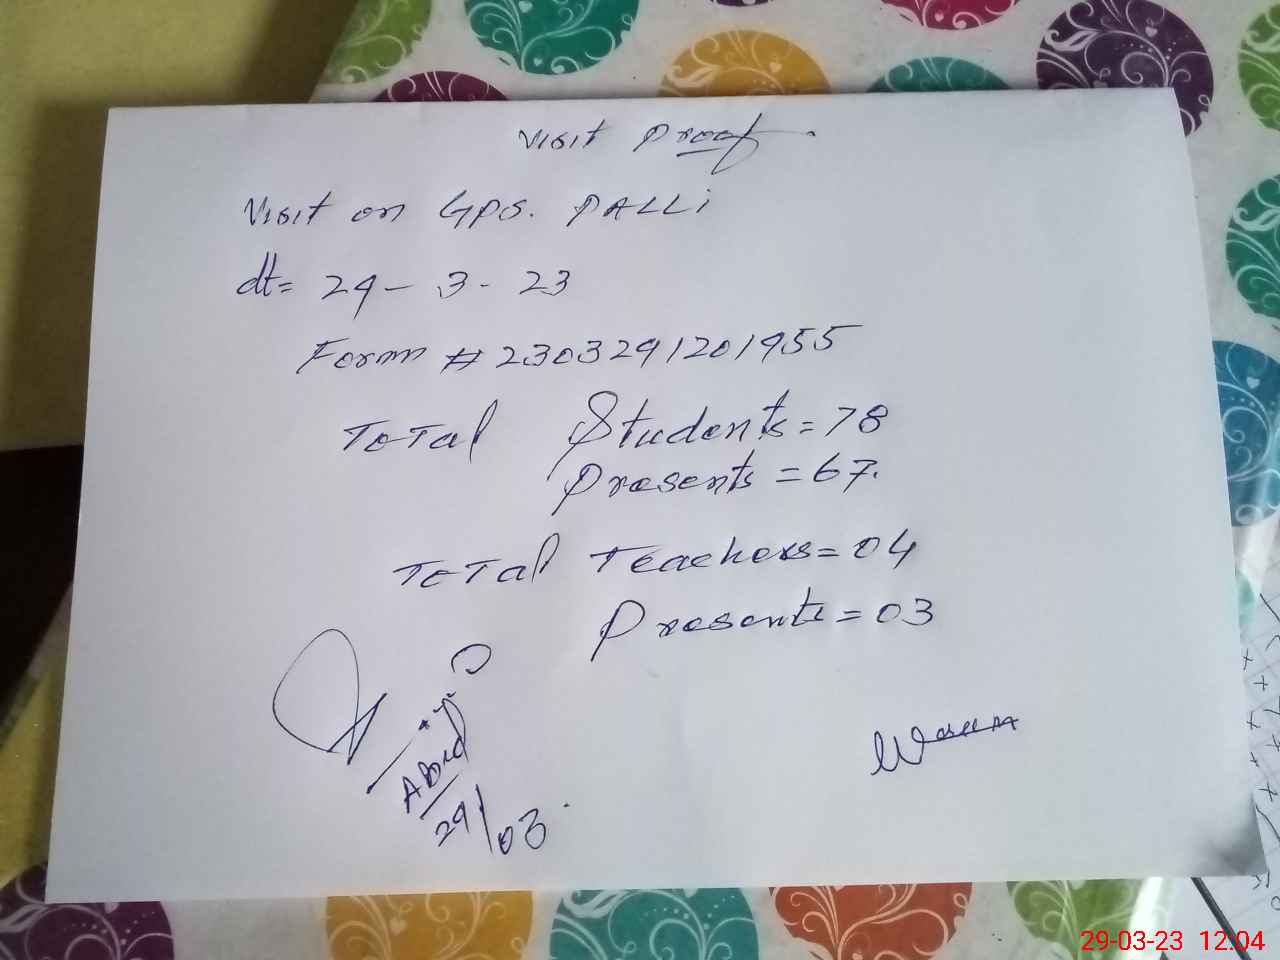 Visit Proof
Visit on GPS. PALLi
dt= 29 - 3 - 23
Form # 2303291201955
ToTal Students = 78
Presents = 67.
ToTal Teachers = 04
Presents = 03
29/03
29-03-23 12:04